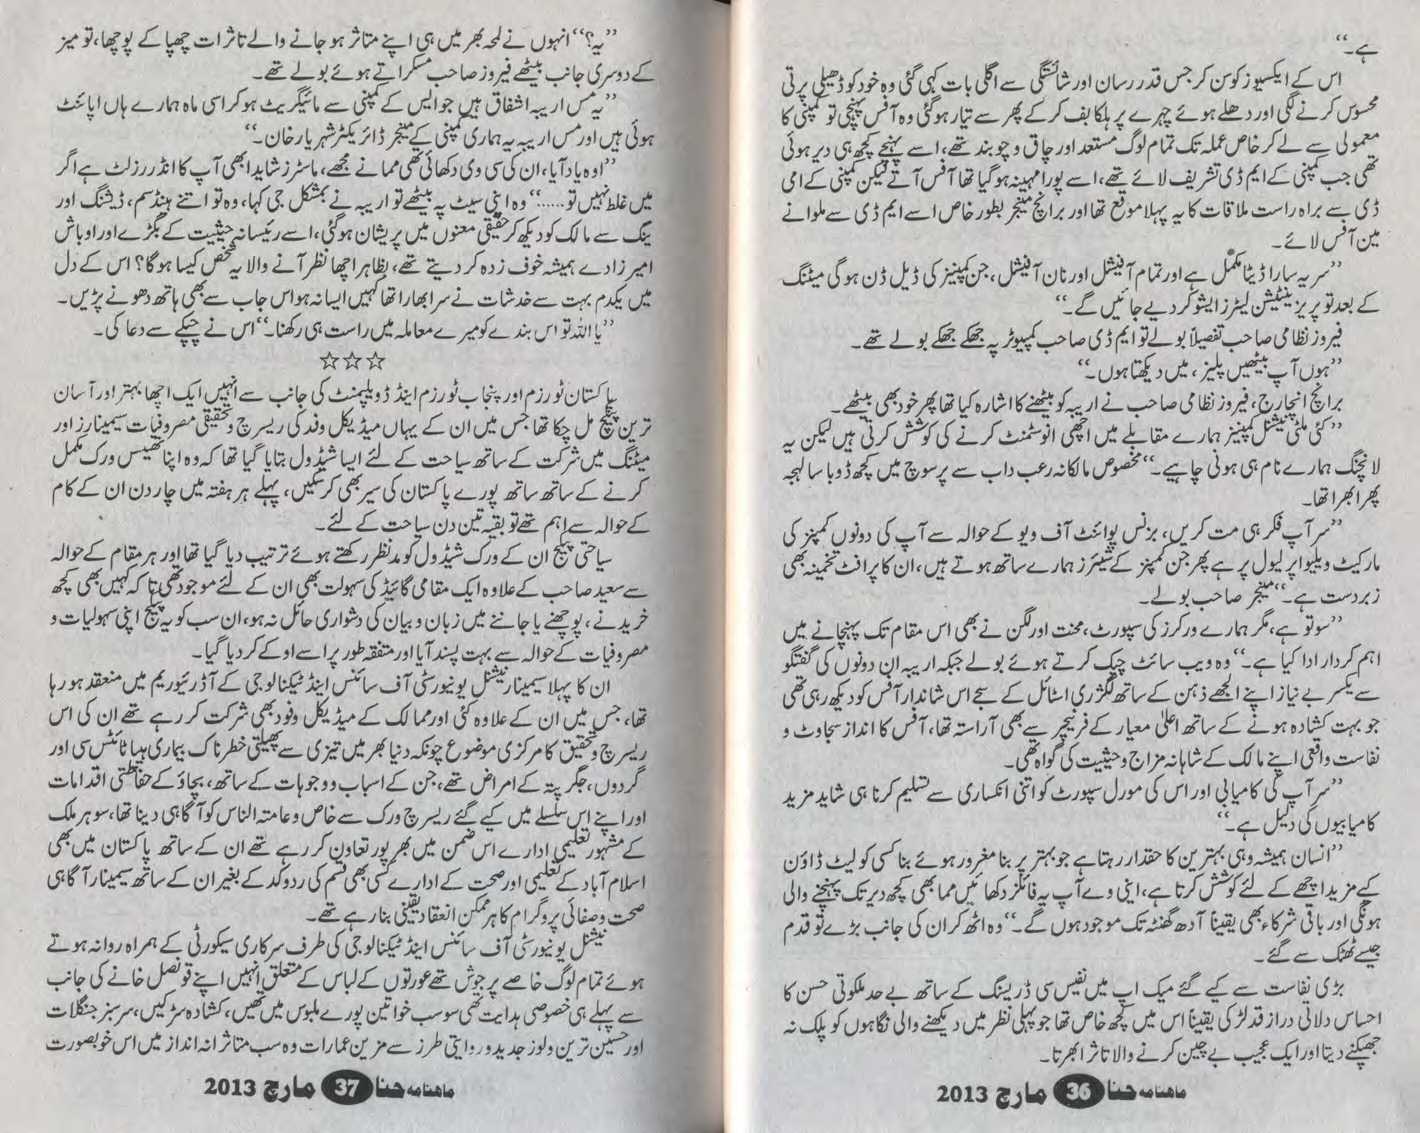 ہے۔‘‘
اس کے ایکسیوز کو سن کر جس قدر رسان اور شائستگی سے اگلی بات کہی گئی وہ خود کو ڈھیلی پرتی
محسوس کرنے لگی اور دھلے ہوئے چہرے پر ہلکا بف کر کے پھر سے تیار ہو گئی وہ آفس پہنچی تو کمپنی کا
معمولی سے لے کر خاص عملہ تک تمام لوگ مستعد اور چاق و چوبند تھے، اسے پہنچے کچھ ہی دیر ہوئی
تھی جب کمپنی کے ایم ڈی تشریف لائے تھے، اسے پورا مہینہ ہو گیا تھا آفس آتے لیکن کمپنی کے امی
ڈی سے براہ راست ملاقات کا یہ پہلا موقع تھا اور برانچ منیجر بطور خاص اسے ایم ڈی سے ملوانے
مین آفس لائے۔
’’سر یہ سارا ڈیٹا مکمل ہے اور تمام آفیشل اور نان آفیشل، جن کمپنیز کی ڈیل ڈن ہو گی میٹنگ
کے بعد تو پریزینٹیشن لیٹرز ایشو کر دیے جائیں گے۔‘‘
فیروز نظامی صاحب تفصیلاً بولے تو ایم ڈی صاحب کمپیوٹر پہ جھکے جھکے بولے تھے۔
’’ہوں آپ بیٹھیں پلیز، میں دیکھتا ہوں۔‘‘
برانچ انچارج، فیروز نظامی صاحب نے اریبہ کو بیٹھنے کا اشارہ کیا تھا پھر خود بھی بیٹھے۔
’’کئی ملٹی نیشنل کمپنیز ہمارے مقابلے میں اچھی انوسٹمنٹ کرنے کی کوشش کرتی ہیں لیکن یہ
لانچنگ ہمارے نام ہی ہونی چاہیے۔‘‘ مخصوص مالکانہ رعب داب سے پرسوچ میں کچھ ڈوبا سا لہجہ
پھر ابھرا تھا۔
’’سر آپ فکر ہی مت کریں، بزنس پوائنٹ آف ویو کے حوالہ سے آپ کی دونوں کمپنز کی
مارکیٹ ویلیو اپر لیول پر ہے پھر جن کمپنز کے شیئرز ہمارے ساتھ ہوتے ہیں، ان کا پرافٹ تخمینہ بھی
زبردست ہے۔‘‘ منیجر صاحب بولے۔
’’سو تو ہے، مگر ہمارے ورکرز کی سپورٹ، محنت اور لگن نے بھی اس مقام تک پہنچانے میں
اہم کردار ادا کیا ہے۔‘‘ وہ ویب سائٹ چیک کرتے ہوئے بولے جبکہ اریبہ ان دونوں کی گفتگو
سے یکسر بے نیاز اپنے الجھے ذہن کے ساتھ لگژری اسٹائل کے سجے اس شاندار آفس کو دیکھ رہی تھی
جو بہت کشادہ ہونے کے ساتھ اعلیٰ معیار کے فرنیچر سے بھی آراستہ تھا، آفس کا انداز سجاوٹ و
نفاست واقعی اپنے مالک کے شاہانہ مزاج و حیثیت کی گواہ تھی۔
’’سر آپ کی کامیابی اور اس کی مورل سپورٹ کو اتنی انکساری سے تسلیم کرنا ہی شاید مزید
کامیابیوں کی دلیل ہے۔‘‘
’’انسان ہمیشہ وہی بہترین کا حقدار رہتا ہے جو بہتر پر بنا مغرور ہوئے بنا کسی کو لیٹ ڈاؤن
کیے مزید اچھے کے لئے کوشش کرتا ہے، اینی وے آپ یہ فائلز دکھائیں مما بھی کچھ دیر تک پہنچنے والی
ہونگی اور باقی شرکاء بھی یقیناً آدھ گھنٹہ تک موجود ہوں گے۔‘‘ وہ اٹھ کر ان کی جانب بڑے تو قدم
جیسے ٹھٹک سے گئے۔
بڑی نفاست سے کیے گئے میک اپ میں نفیس سی ڈریسنگ کے ساتھ بے حد ملکوتی حسن کا
احساس دلاتی دراز قد لڑکی یقیناً اس میں کچھ خاص تھا جو پہلی نظر میں دیکھنے والی نگاہوں کو پلک نہ
جھپکنے دیتا اور ایک عجیب بے چین کرنے والا تاثر ابھرتا۔
ماہنامہ حنا 36 مارچ 2013
’’یہ؟‘‘ انہوں نے لمحہ بھر میں ہی اپنے متاثر ہو جانے والے تاثرات چھپا کے پوچھا، تو میز
کے دوسری جانب بیٹھے فیروز صاحب مسکراتے ہوئے بولے تھے۔
’’یہ مس اریبہ اشفاق ہیں جو ایس کے کمپنی سے مائیگریٹ ہو کر اسی ماہ ہمارے ہاں اپائنٹ
ہوئی ہیں اور مس اریبہ یہ ہماری کمپنی کے منیجر ڈائریکٹر شہریار خان۔‘‘
’’اوہ یاد آیا، ان کی سی وی دکھائی تھی ممانے مجھے، ماسٹرز شاید ابھی آپ کا انڈر رزلٹ ہے اگر
میں غلط نہیں تو......‘‘ وہ اپنی سیٹ پہ بیٹھے تو اریبہ نے بمشکل جی کہا، وہ تو اتنے ہینڈسم، ڈیشنگ اور
ینگ سے مالک کو دیکھ کر حقیقی معنوں میں پریشان ہو گئی، اسے رئیسانہ حیثیت کے بگڑے اور اوباش
امیر زادے ہمیشہ خوف زدہ کر دیتے تھے، بظاہر اچھا نظر آنے والا یہ شخص کیسا ہوگا؟ اس کے دل
میں یکدم بہت سے خدشات نے سر ابھارا تھا کہیں ایسا نہ ہو اس جاب سے بھی ہاتھ دھونے پڑیں۔
’’یا اللہ تو اس بندے کو میرے معاملہ میں راست ہی رکھنا۔‘‘ اس نے چپکے سے دعا کی۔
☆☆☆
پاکستان ٹورزم اور پنجاب ٹورزم اینڈ ڈویلپمنٹ کی جانب سے انہیں ایک اچھا بہتر اور آسان
ترین پیکج مل چکا تھا جس میں ان کے یہاں میڈیکل وفد کی ریسرچ و تحقیقی مصروفیات سیمینارز اور
میٹنگ میں شرکت کے ساتھ سیاحت کے لئے ایسا شیڈول بتایا گیا تھا کہ وہ اپنا تھیسس ورک مکمل
کرنے کے ساتھ ساتھ پورے پاکستان کی سیر بھی کر سکیں، پہلے ہر ہفتہ میں چار دن ان کے کام
کے حوالہ سے اہم تھے تو بقیہ تین دن سیاحت کے لئے۔
سیاحتی پیکج ان کے ورک شیڈول کو مدنظر رکھتے ہوئے ترتیب دیا گیا تھا اور ہر مقام کے حوالہ
سے سعید صاحب کے علاوہ ایک مقامی گائیڈ کی سہولت بھی ان کے لئے موجود تھی تاکہ کہیں بھی کچھ
خریدنے، پوچھنے یا جاننے میں زبان و بیان کی دشواری حائل نہ ہو، ان سب کو یہ پیکج اپنی سہولیات و
مصروفیات کے حوالہ سے بہت پسند آیا اور متفقہ طور پر اسے اوکے کر دیا گیا۔
ان کا پہلا سیمینار نیشنل یونیورسٹی آف سائنس اینڈ ٹیکنالوجی کے آڈریٹوریم میں منعقد ہو رہا
تھا، جس میں ان کے علاوہ کئی اور ممالک کے میڈیکل وفود بھی شرکت کر رہے تھے ان کی اس
ریسرچ و تحقیق کا مرکزی موضوع چونکہ دنیا بھر میں تیزی سے پھیلتی خطرناک بیماری ہپاٹائٹس سی اور
گردوں، جگر پتہ کے امراض تھے، جن کے اسباب و وجوہات کے ساتھ، بچاؤ کے حفاظتی اقدامات
اور اپنے اس سلسلے میں کیے گئے ریسرچ ورک سے خاص و عامتہ الناس کو آگاہی دینا تھا، سو ہر ملک
کے مشہور تعلیمی ادارے اس ضمن میں بھر پور تعاون کر رہے تھے ان کے ساتھ پاکستان میں بھی
اسلام آباد کے تعلیمی اور صحت کے ادارے کسی بھی قسم کی ردوکد کے بغیر ان کے ساتھ سیمینار آگاہی
صحت و صفائی پروگرام کا ہر ممکن انعقاد یقینی بنا رہے تھے۔
نیشنل یونیورسٹی آف سائنس اینڈ ٹیکنالوجی کی طرف سرکاری سیکورٹی کے ہمراہ روانہ ہوتے
ہوئے تمام لوگ خاصے پر جوش تھے عورتوں کے لباس کے متعلق انہیں اپنے قونصل خانے کی جانب
سے پہلے ہی خصوصی ہدایت تھی سو سب خواتین پورے ملبوس میں تھیں، کشادہ سڑکیں، سرسبز جنگلات
اور حسین ترین ولوز جدید و روایتی طرز سے مزین عمارات وہ سب متاثرانہ انداز میں اس خوبصورت
ماہنامہ حنا 37 مارچ 2013